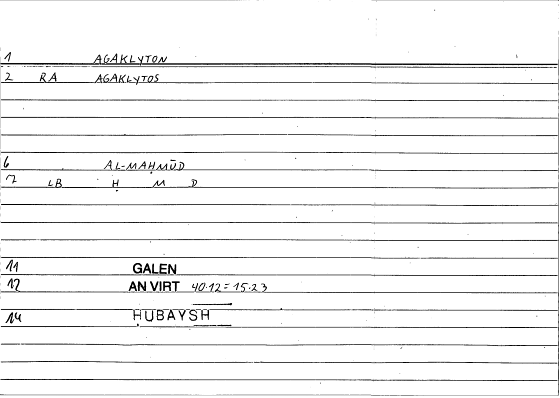 1 AGAKLYTON
2 RA AGAKLYTOS
6 AL-MAḤMŪD
7 LB Ḥ M D
11 GALEN
12 AN VIRT 40.12 = 15.23
14 ḤUBAYSH